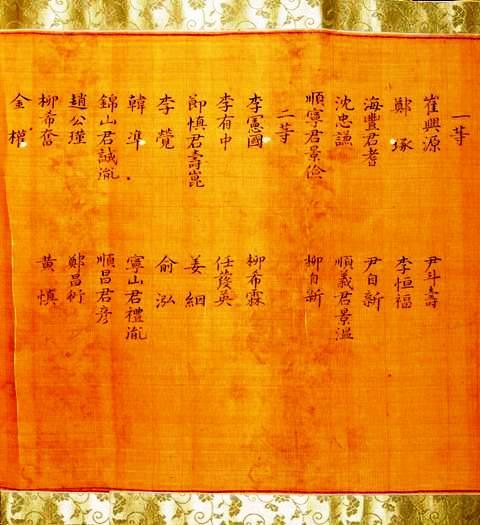 一等
崔興源 尹斗壽
鄭琢 李恒福
海豐君耆 尹自新
沈忠謙 順義君景溫
順寧君景儉 柳自新
二等
李憲國 柳希霖
李有中 任發英
卽愼君壽崑 姜絪
李覮 俞泓
韓準 寧山君禮胤
錦山君誠胤 順昌君彥
趙公瑾 鄭昌衍
柳希奮 黃愼
金權